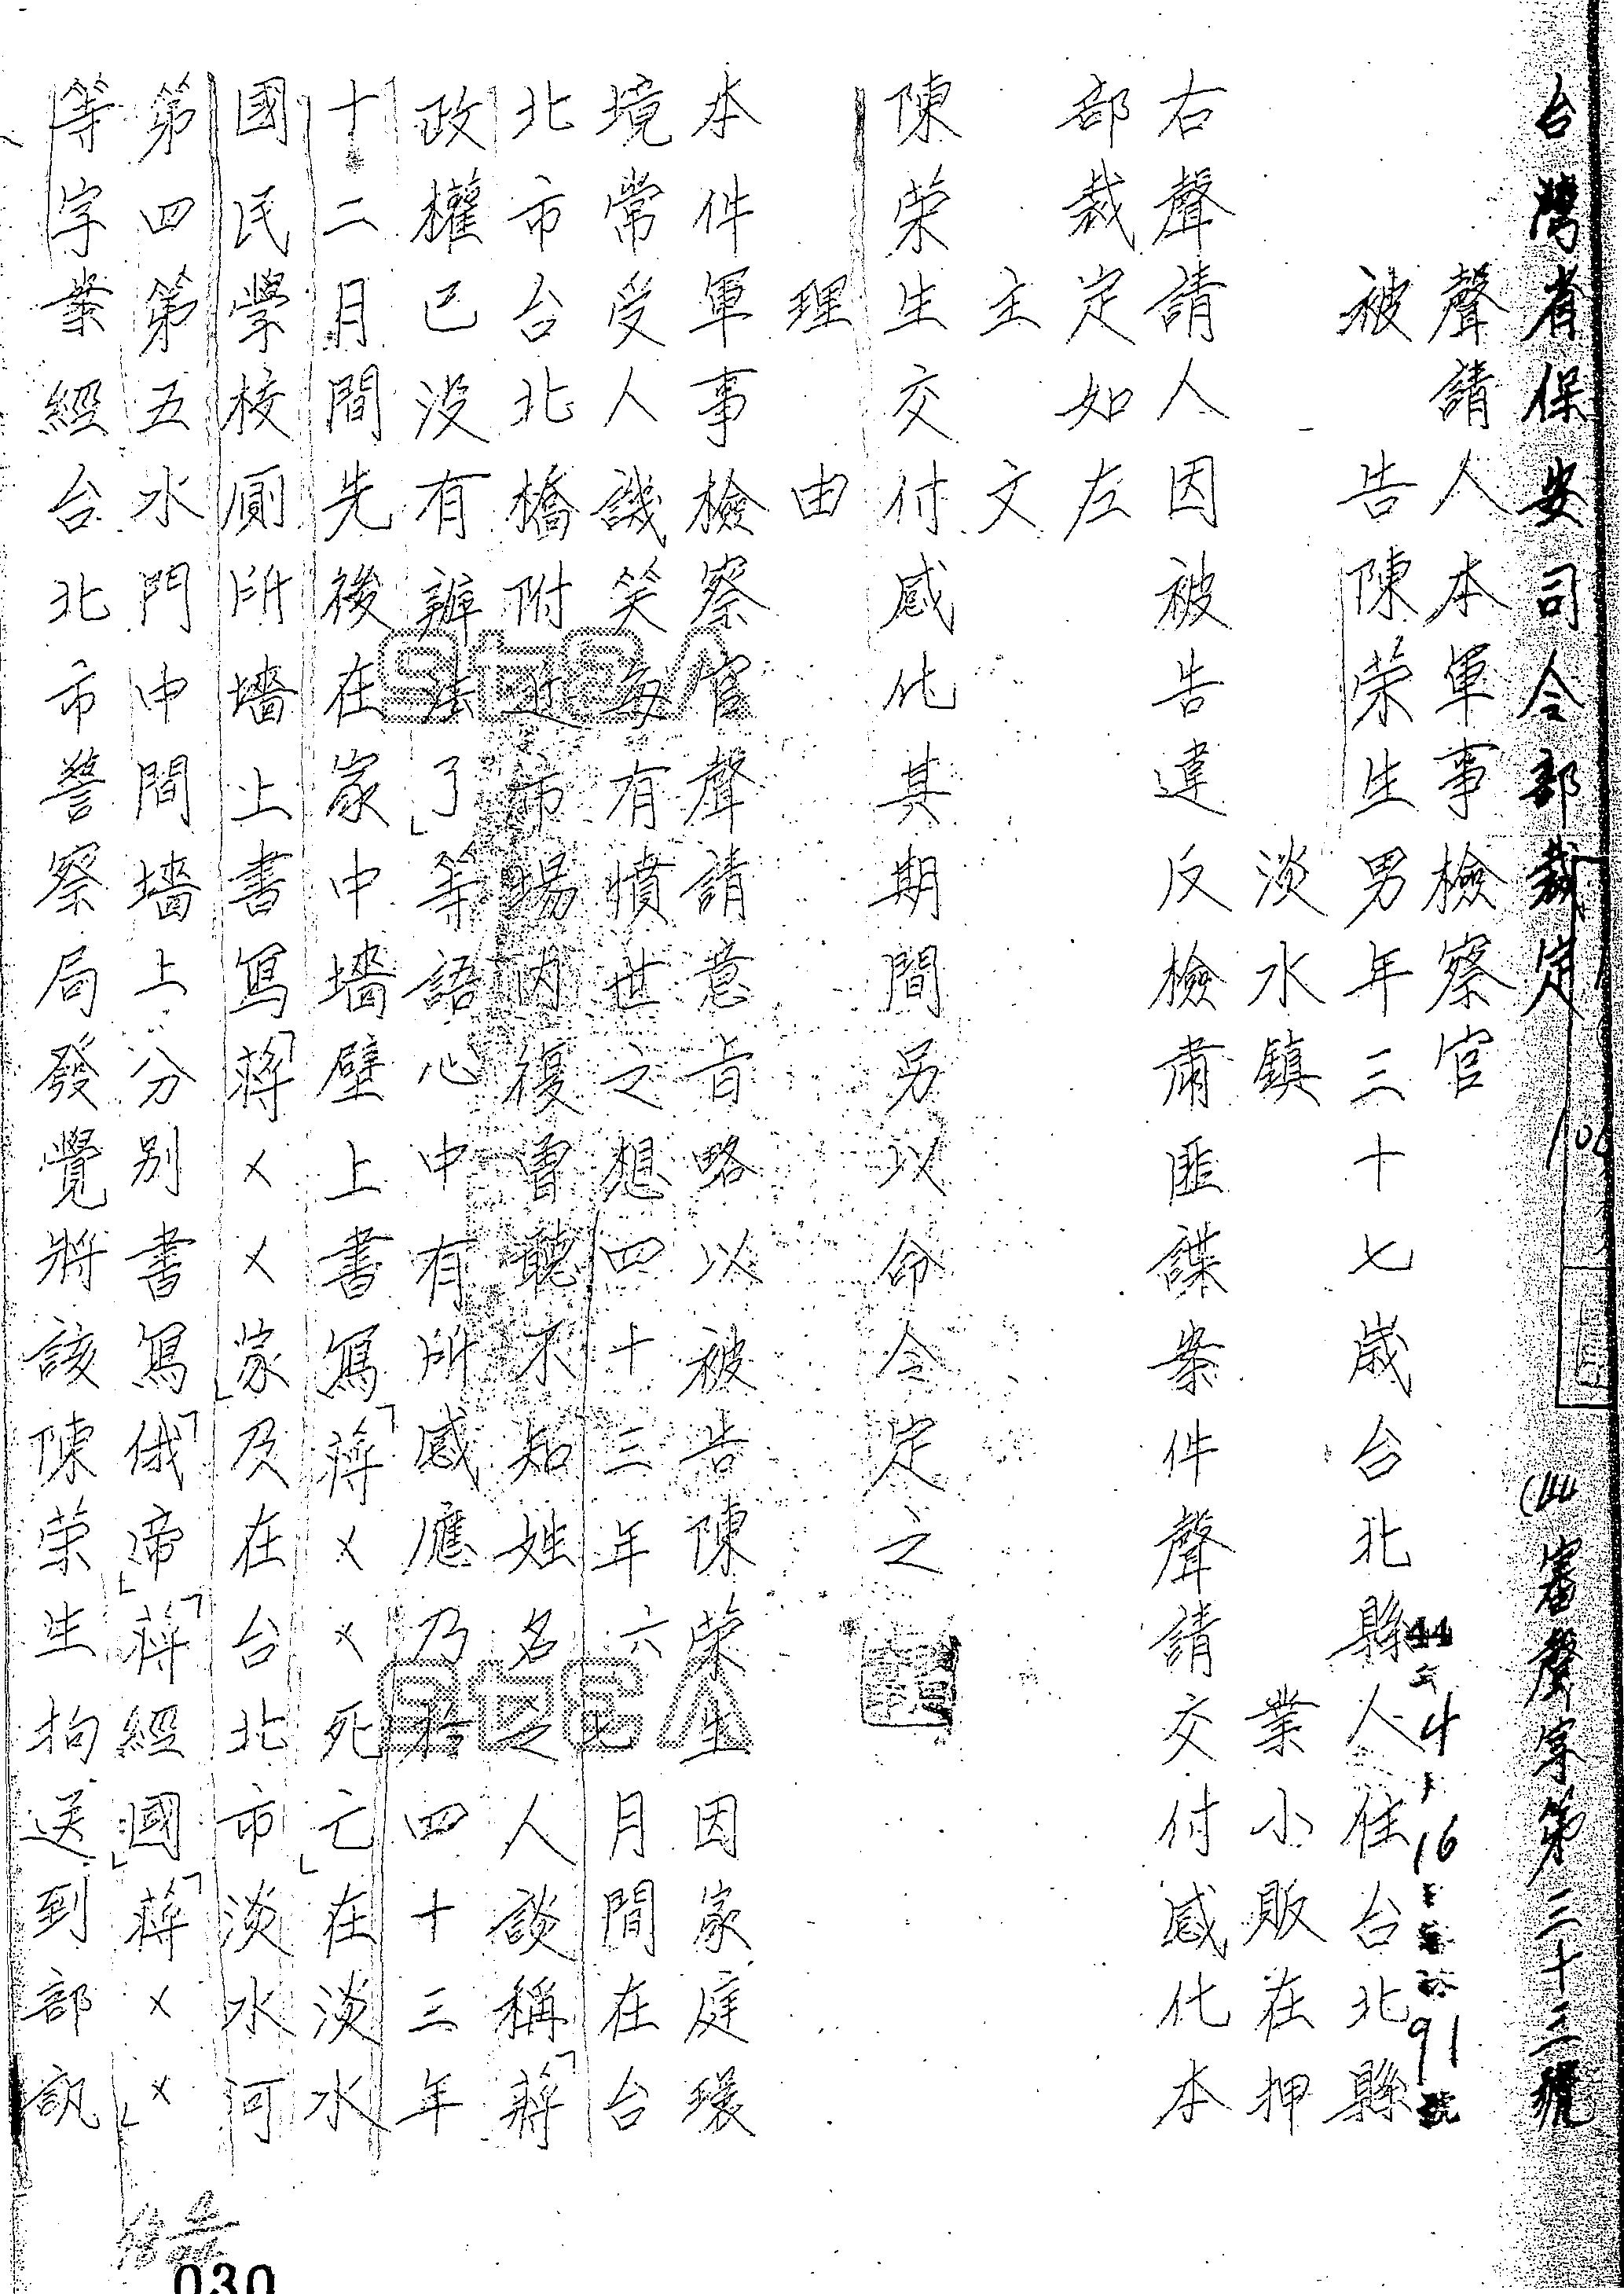 台灣省保安司令部裁定 審聲字第三十三號
聲請人 本軍事檢察官
被告 陳荣生 男年三十七歲台北縣人住台北縣
淡水鎮 業小販在押
右聲請人因被告違反檢肅匪諜案件聲請交付感化本
部裁定如左
主文
陳荣生交付感化其期間另以命令定之
理由
本件軍事檢察官聲請意旨略以被告陳荣生因家庭環
境常受人譏笑每有憤世之想四十三年六七月間在台
北市台北橋附近市場內復曾聽不知姓名之人談稱「蔣
政權已没有辦法了」等語心中有所感應乃於四十三年
十二月間先後在家中墻壁上書寫「蔣××死亡」在淡水
國民學校厠所墻上書寫「蔣××家」及在台北市淡水河
第四第五水門中間墻上分別書寫「俄帝」「蔣經國」「蔣××」
等字業經台北市警察局發覺將該陳荣生拘送到部訊
44 4 16 91 號
030